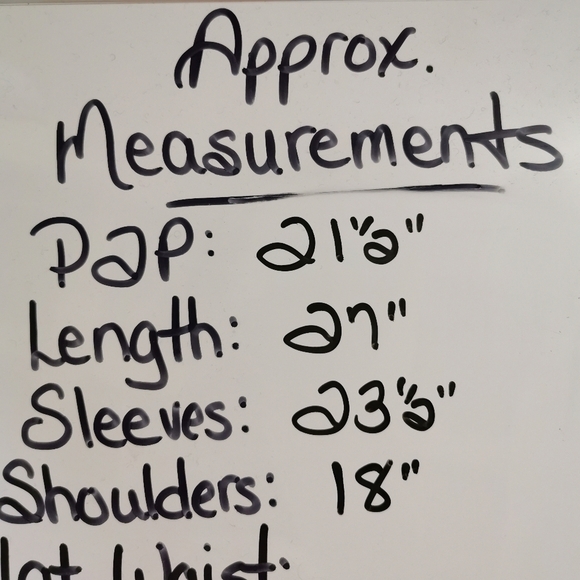 Approx.
Measurements
P2P: 21½"
Length: 27"
Sleeves: 23½"
Shoulders: 18"
Waist: